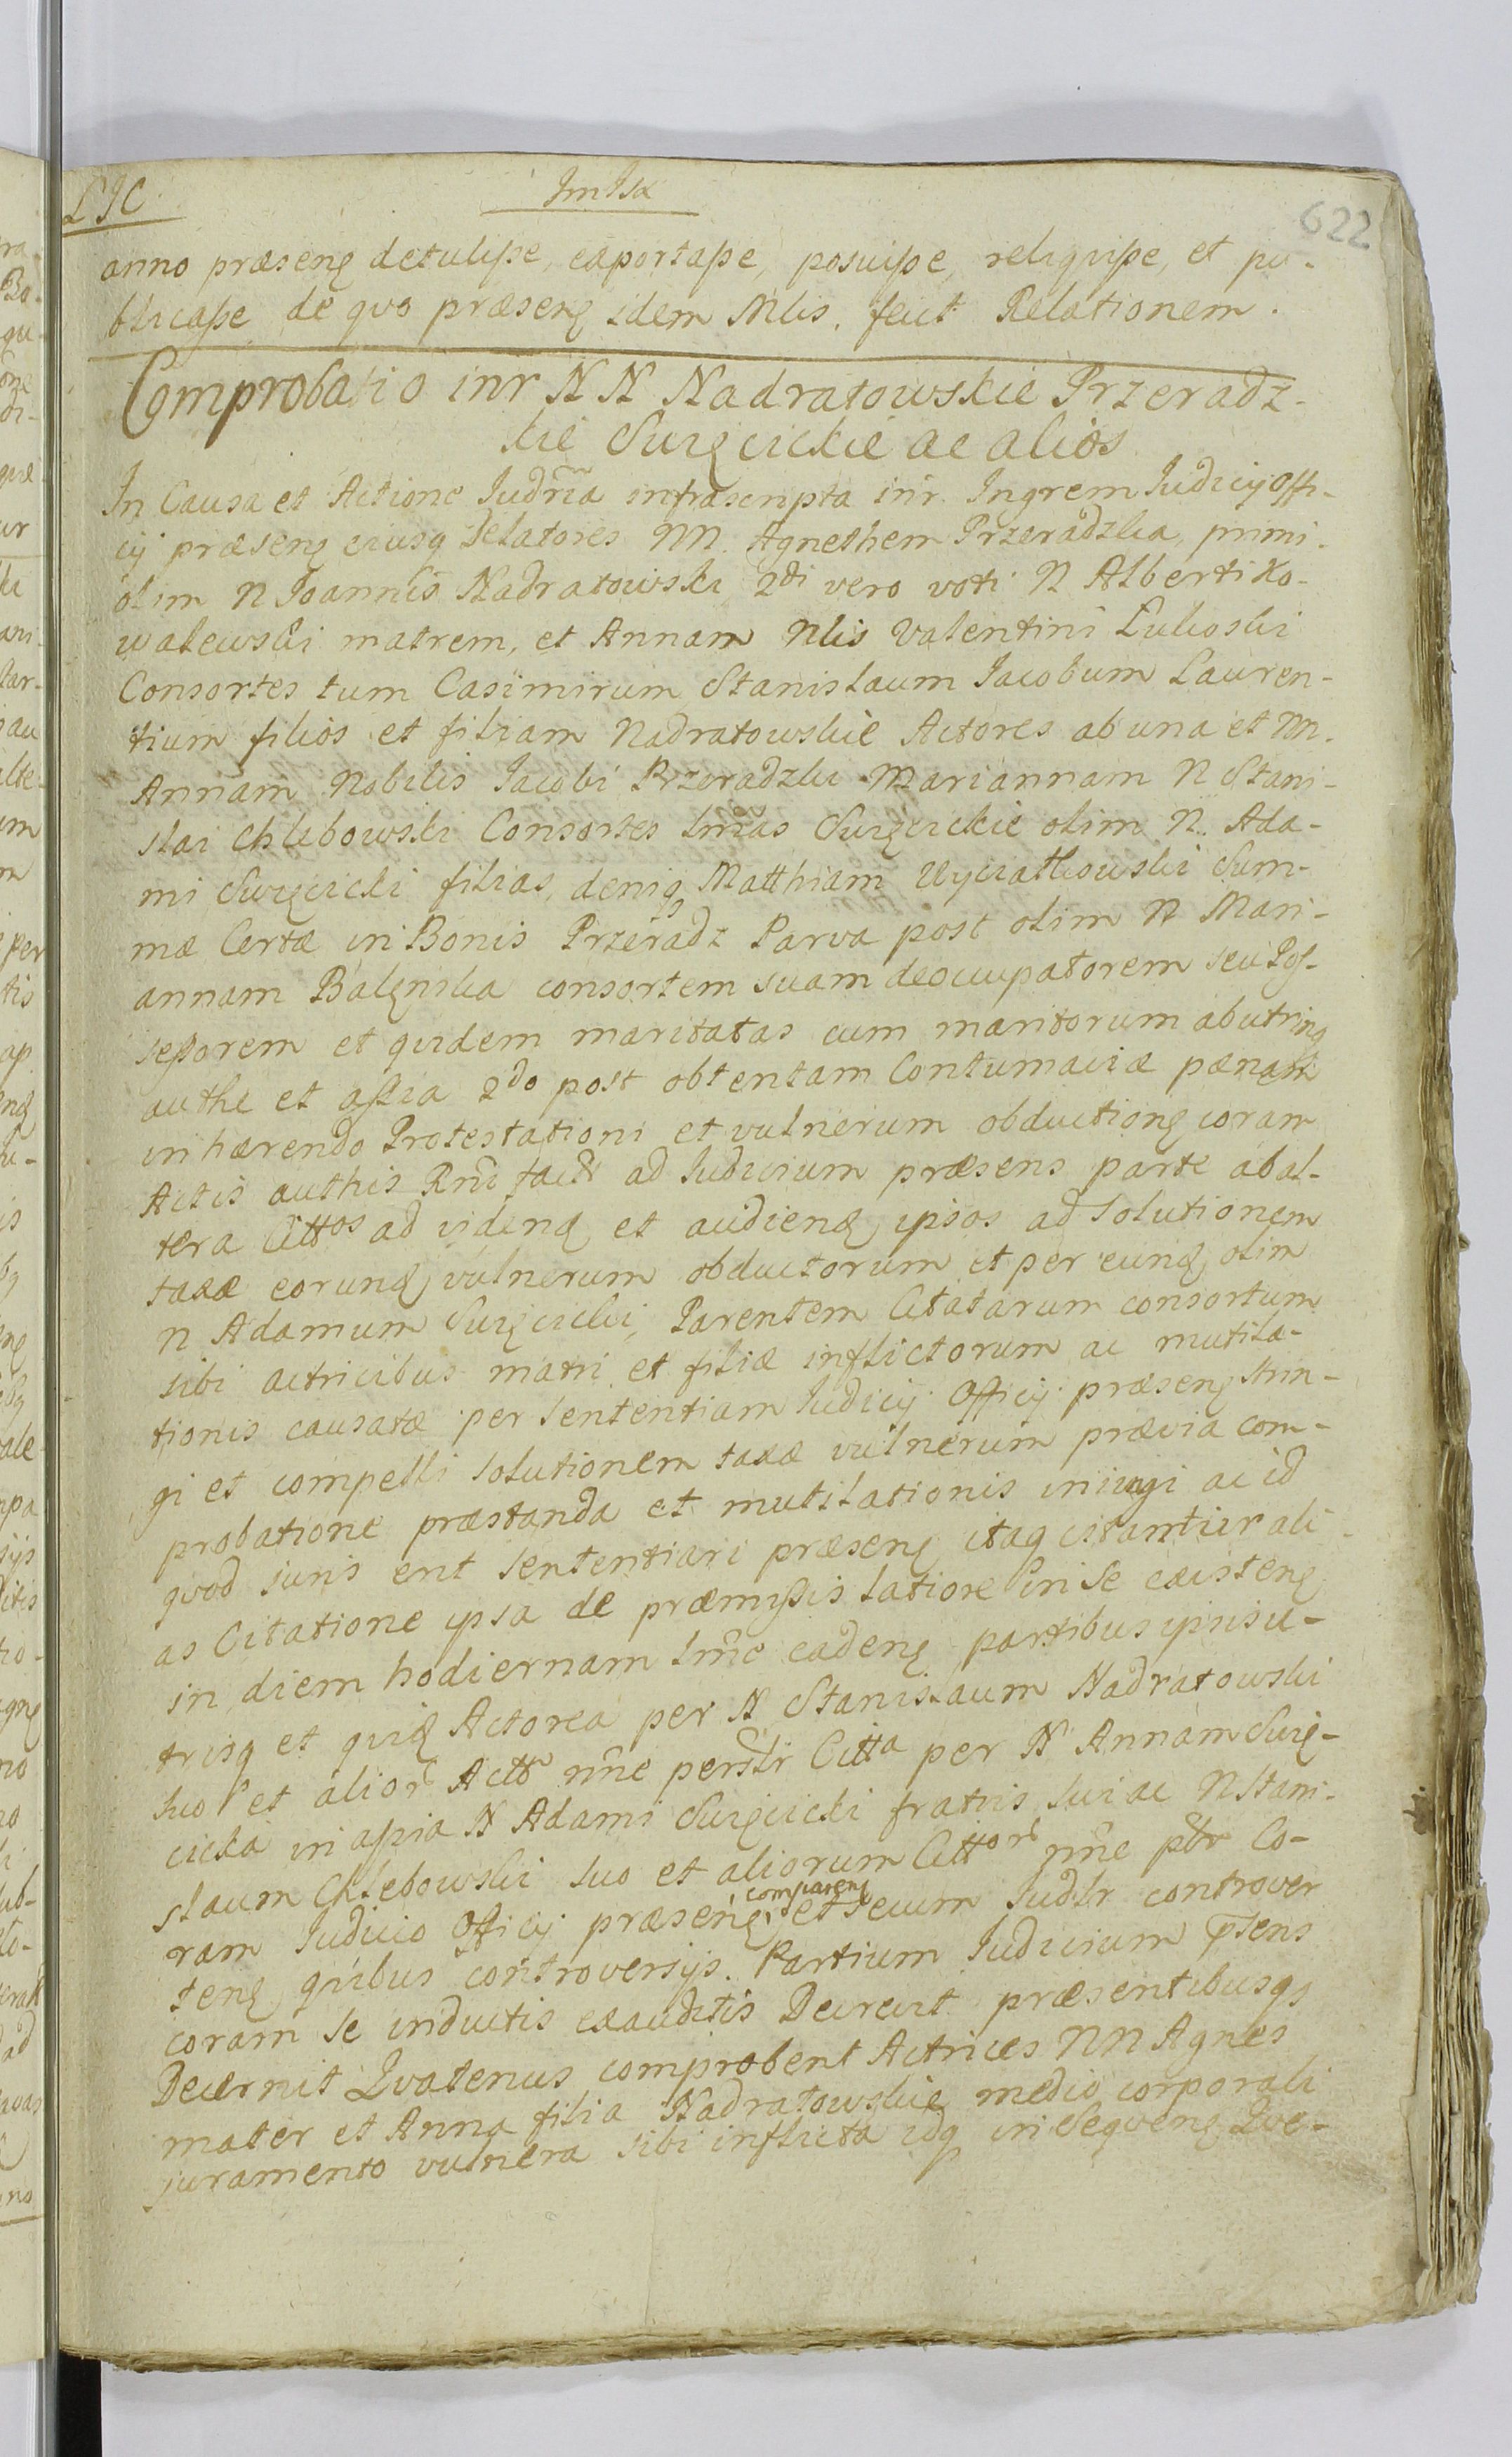 LJC
622
anno præsenę detulisse, exportasse, posuisse, reliquisse, et pu-
blicasse de quo præsenę idem Mlis. fecit Relationem.
Comprobatio inr N N Nadratowskie Przeradz-
kie Surzicickie ac alios
In Causa et Actione Iudria infrascripta inr. Ingrem Iudicÿ offi-
cÿ præsenę eiusq Delatores NN. Agnethem Przeradzka, primi
olim N Joannis Nadratowski 2di vero voti N Alberti Ko-
walewski matrem, et Annam Nlis Valentini Lukoski
Consortes tum Casimirum Stanislaum Jacobum Lauren-
tium filios et filiam Nadratowskie Actores ab una et NN.
Annam Nobilis Jacobi Przeradzki Mariannam N Stani-
slai Chlebowski Consortes lmas Surzicickie olim N. Ada-
mi Surzicicki filias, deniq Matthiam Uyciathowski Sum-
mæ Certæ in Bonis Przeradz Parva post olim N Mari-
annam Balęnska consortem suam deoccupatorem seu Pos-
sessorem et quidem maritatas cum maritorum ab utrinq
authe et assia 2do post obtentam Contumaciæ pænam
inhærendo Protestationi et vulnerum obductionę coram
Actis authis Rni factæ ad Iudicium præsens parte abal-
tera Cittos ad videnę et audienę ipsos ad solutionem
taxæ eorunę vulnerum obductorum et per eunę olim
N Adamum Surzicicki, Parentem Citatarum consortum
sibi actricibus matri et filiæ inflictorum ac mutila-
tionis causatæ per sententiam Iudicÿ Officÿ præsenę strin-
gi et compelli solutionem taxæ vulnerum prævia com-
probatione præstanda et mutilationis iniungi ac id
quod iuris erit sententiari præsenę itaq citantur ali-
as Citatione ipsa de præmissis latiore in se existenę
in diem hodiernam lmc cadenę partibus ipsis u-
trisq et quię Actorea per N Stanislaum Nadratowski
suo et alior Actt nne persltr Citta per N Annam Surzi-
cicka in assia N Adami Surzicicki fratris sui ac N Stani-
slaum Chlebowski suo et aliorum Citt nne pltr Co-
ram Iudicio Officÿ præsenę comparenę et secum Iudltr controver
tenę quibus controversÿs Partium Iudicium psens
coram se inductis exauditis Decrevit præsentibusqs
Decernit Quatenus comprobent Actrices NN Agnes
mater et Anna filia Nadratowskie medio corporali
juramento vulnera sibi inflicta idq in sequenę Que-